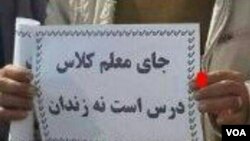 جای معلم کلاس
درس است نه زندان
VOA